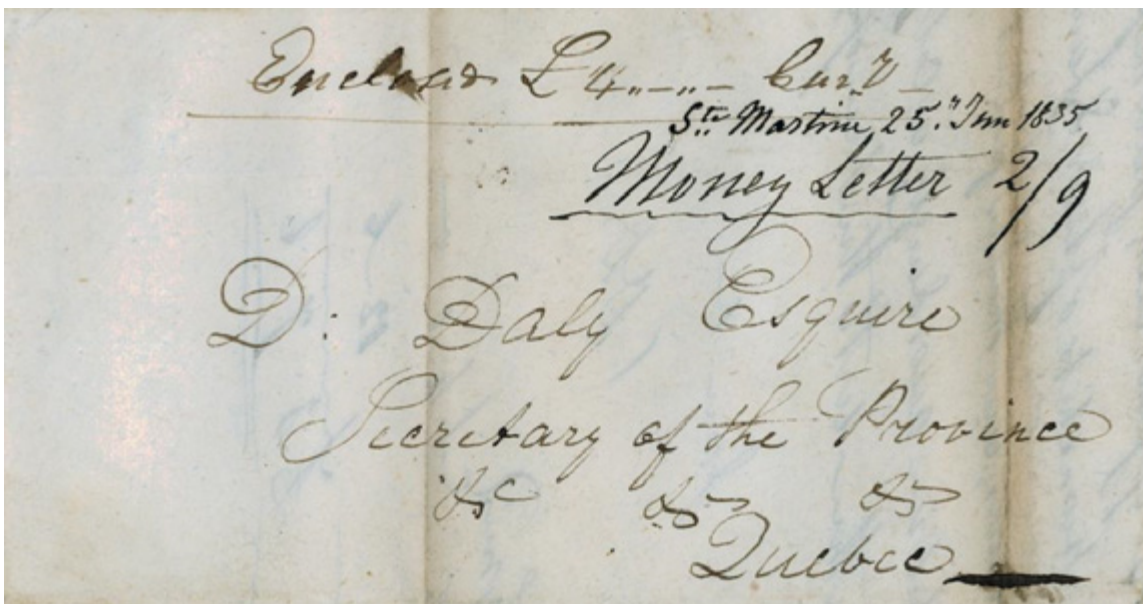 Enclosed £4..–..– Cur.y
Ste Martine 25. Jun 1835
Money Letter 2/9
D: Daly Esquire
Secretary of the Province
&c &c &c
Quebec